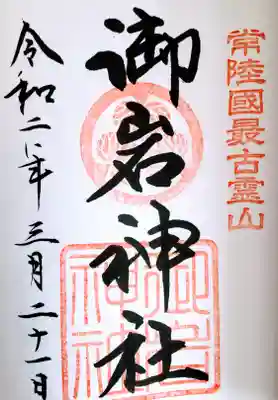 常陸國最古霊山
御岩神社
令和二年三月二十一日